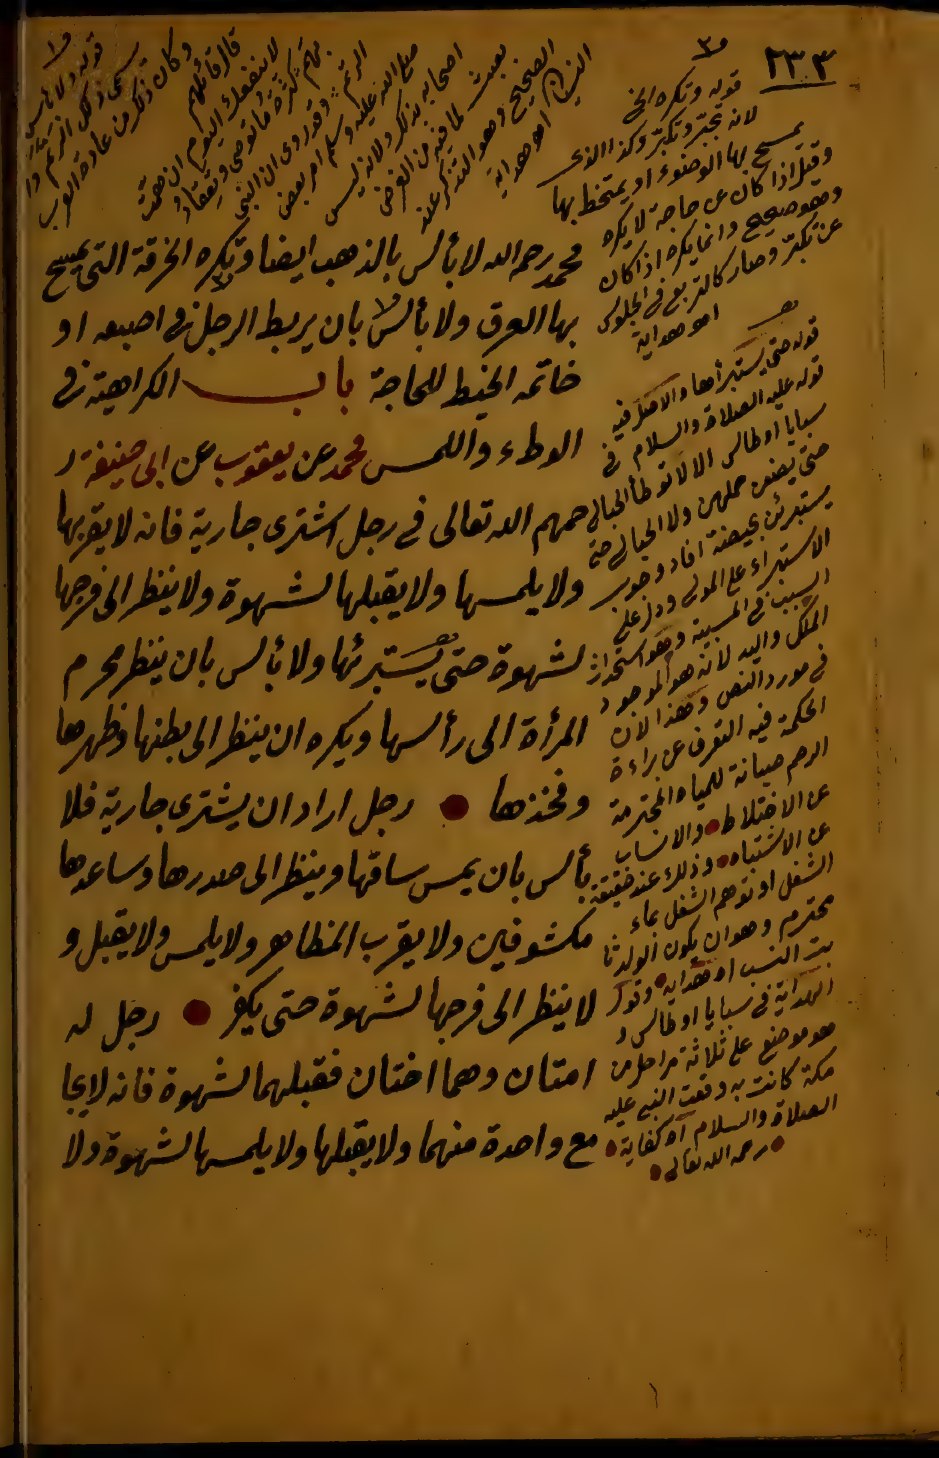 ٢٣٣
محمد رحمه الله لا بأس بالذهب ايضا وتكره الخرقة التى يمسح
بها العرق ولا بأس بان يربط الرجل فى اصبعه او
خاتمه الخيط للحاجة باب الكراهية فى
الوطء واللمس محمد عن يعقوب عن ابى حنيفة ر
حمهم الله تعالى فى رجل اشترى جارية فانه لا يقربها
ولا يلمسها ولا يقبلها لشهوة ولا ينظر الى فرجها
لشهوة حتى يستبرئها ولا بأس بان ينظر محرم
المرأة الى رأسها ويكره ان ينظر الى بطنها وظهرها
وفخذها رجل اراد ان يشترى جارية فلا
بأس بان يمس ساقها وينظر الى صدرها وساعدها
مكشوفين ولا يقرب المظاهر ولا يلمس ولا يقبل و
لا ينظر الى فرجها لشهوة حتى يكفر رجل له
امتان وهما اختان فقبلهما لشهوة فانه لا يجا
مع واحدة منهما ولا يقبلها ولا يلمسها لشهوة ولا
قوله وتكره الخ
لانه تجبر وتكبر وكذا الذى
يمسح بها الوضوء او يمتخط بها
وقيل اذا كان عن حاجة لا يكره
وهو صحيح وانما يكره اذا كان
عن تكبر وصار كالتربع فى الجلوس
اهـ هداية
قوله حتى يستبرأها والاصل فيه
قوله عليه الصلاة والسلام فى
سبايا اوطاس الا لا توطأ الحبالى
حتى يضعن حملهن ولا الحيالى حتى
يستبرئن بحيضة افاد وجوب
الاستبراء على المولى ودل على
السبب فى المسبية وهو استحداث
الملك واليد لانه هو الموجود
فى مورد النص وهذا لان
الحكمة فيه التعرف عن براءة
الرحم صيانة للمياه المحترمة
عن الاختلاط والانساب
عن الاشتباه وذلك عند حقيقة
الشغل او توهم الشغل بماء
محترم وهو ان يكون الولد ثا
بت النسب اهـ هداية وقول
الهداية فى سبايا اوطاس و
هو موضع على ثلاثة مراحل من
مكة كانت به وقعت النبى عليه
الصلاة والسلام اهـ كفاية
رحمه الله تعالى
قوله ولا بأس
يسمى ذلك الرتم
وكان ذلك من عادة العرب
قال قائلهم
لا ينفعنك اليوم ان همت
بهم كثرة ما توصى وتعقاد
الرتم وقد روى ان النبى
صلى الله عليه وسلم امر بعض
اصحابه بذلك ولانه ليس
بعبث لما فيه من الغرض
الصحيح وهو التذكر عند
النسيان اهـ هداية